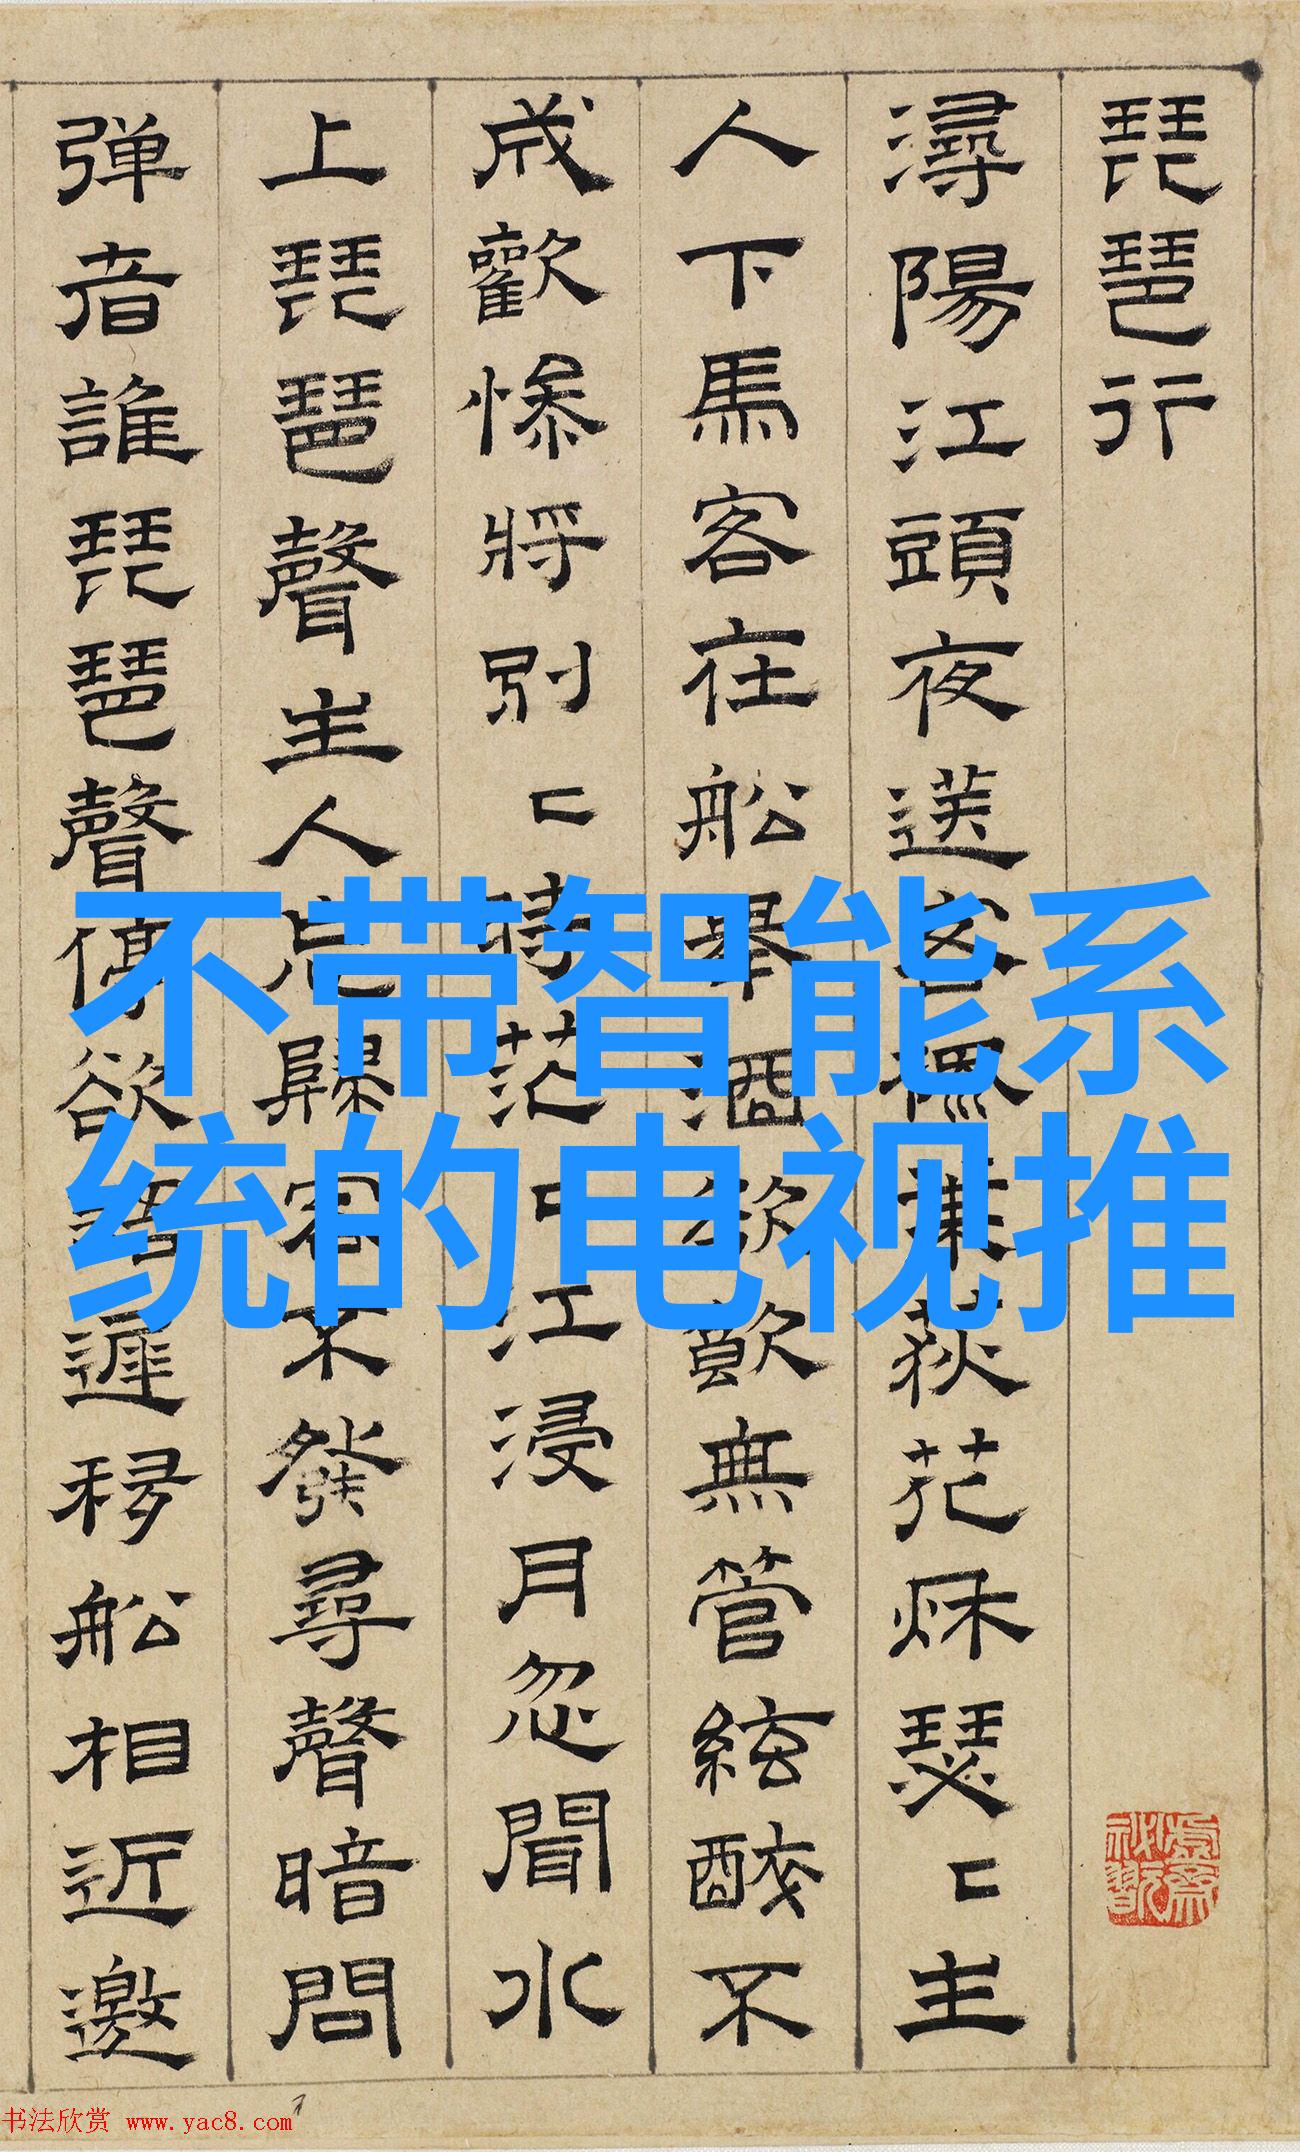 琵琶行
潯陽江頭夜送客楓葉荻花秌瑟〻主
人下馬客在船舉酒欲飲無管絃醉不
成歡慘將別〻時茫〻江浸月忽聞水
上琵琶聲主人忘歸客不發尋聲暗問
弹者誰琵琶聲停欲語遲移船相近邀
不带智能系
统的电视推
书法欣赏 www.yac8.com